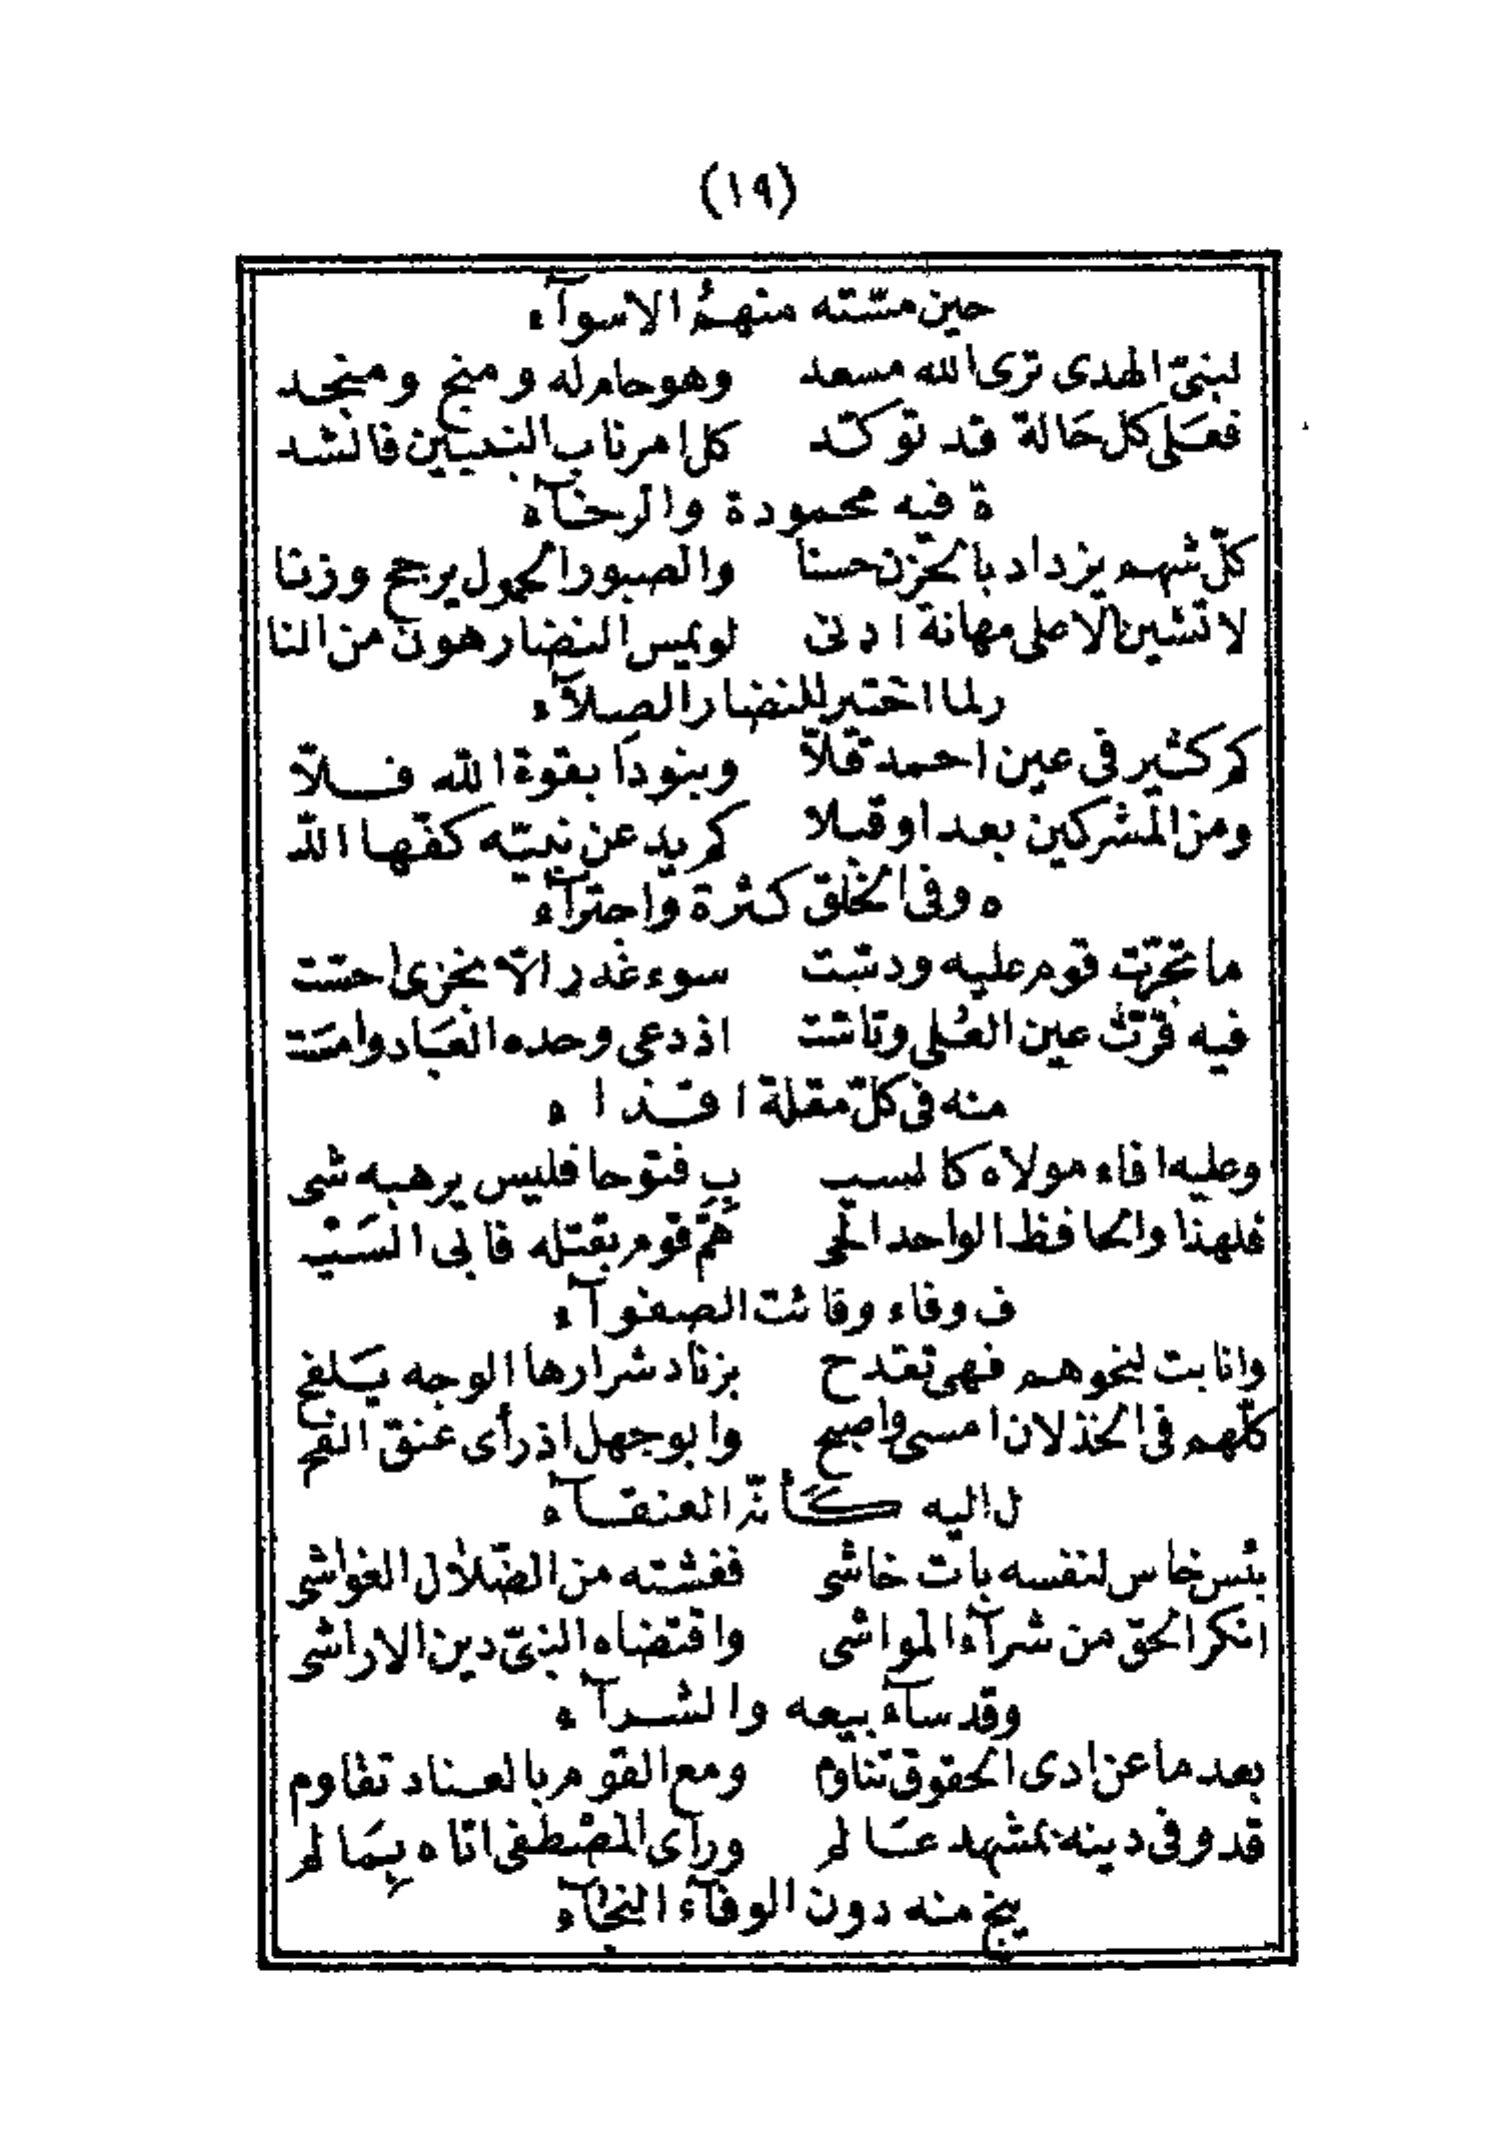 (١٩)
حين مسّته منهمُ الاسوآء
لنبيّ الهدى ترى الله مسعد وهو حام له ومنج ومنجد
فعَلى كل حَالة قد توكّد كل امر ناب النبيين فالشد
ة فيه محمودة والرخآء
كلّ شهم يزداد بالحَزن حسنا والصبور الحمول يرجح وزنا
لا تشين الاعلى مهانة ادنى لو يمس النضار هون من النا
ر لما اختير للنضار الصلآء
كم كثير في عين احمد قلّا وبنودًا بقوة الله فلّا
ومن المشركين بعد او قبلا كم يد عن نبيّه كفّها اللّٰ
ه وفى الخلق كثرة واجترآء
ما تجرّت قوم عليه ودسّت سوء غدر الّا بخزى احسّت
فيه قرّت عين العُلى وتاسّت اذ دعى وحده العبَاد وامسَت
منه في كلّ مقلة اقذاء
وعليه افاء مولاه كالسيب ب فتوحا فليس يرهبه شى
فلهذا والحافظ الواحد الحى هَمّ قوم بقتله فابى السَيْ
ف وفاء وفاءت الصفوآء
وانابت لنحوهم فهى تقدح بزناد شرارها الوجه يَلفح
كلّهم في الخذلان امسى واصبح وابو جهل اذ رأى عنق الفح
ل اليه كأنّه العنقآء
بئس خاس لنفسه بات خاشى فغشته من الضّلال الغواشى
انكر الحق من شرآء المواشى واقتضاه النبىّ دين الاراشى
وقد سآء بيعه والشرآء
بعد ما عن ادى الحقوق تناوم ومع القوم بالعناد تقاوم
قد وفى دينه بمشهد عَالم ورأى المصْطفى اتاه بِمَا لم
ينج منه دون الوفآء النجآء